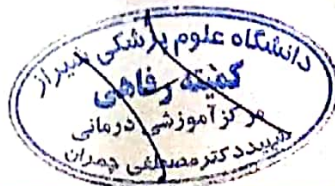 دانشگاه علوم پزشکی شیراز
کمیته رفاهی
مرکز آموزشی درمانی
شهید دکتر مصطفی چمران